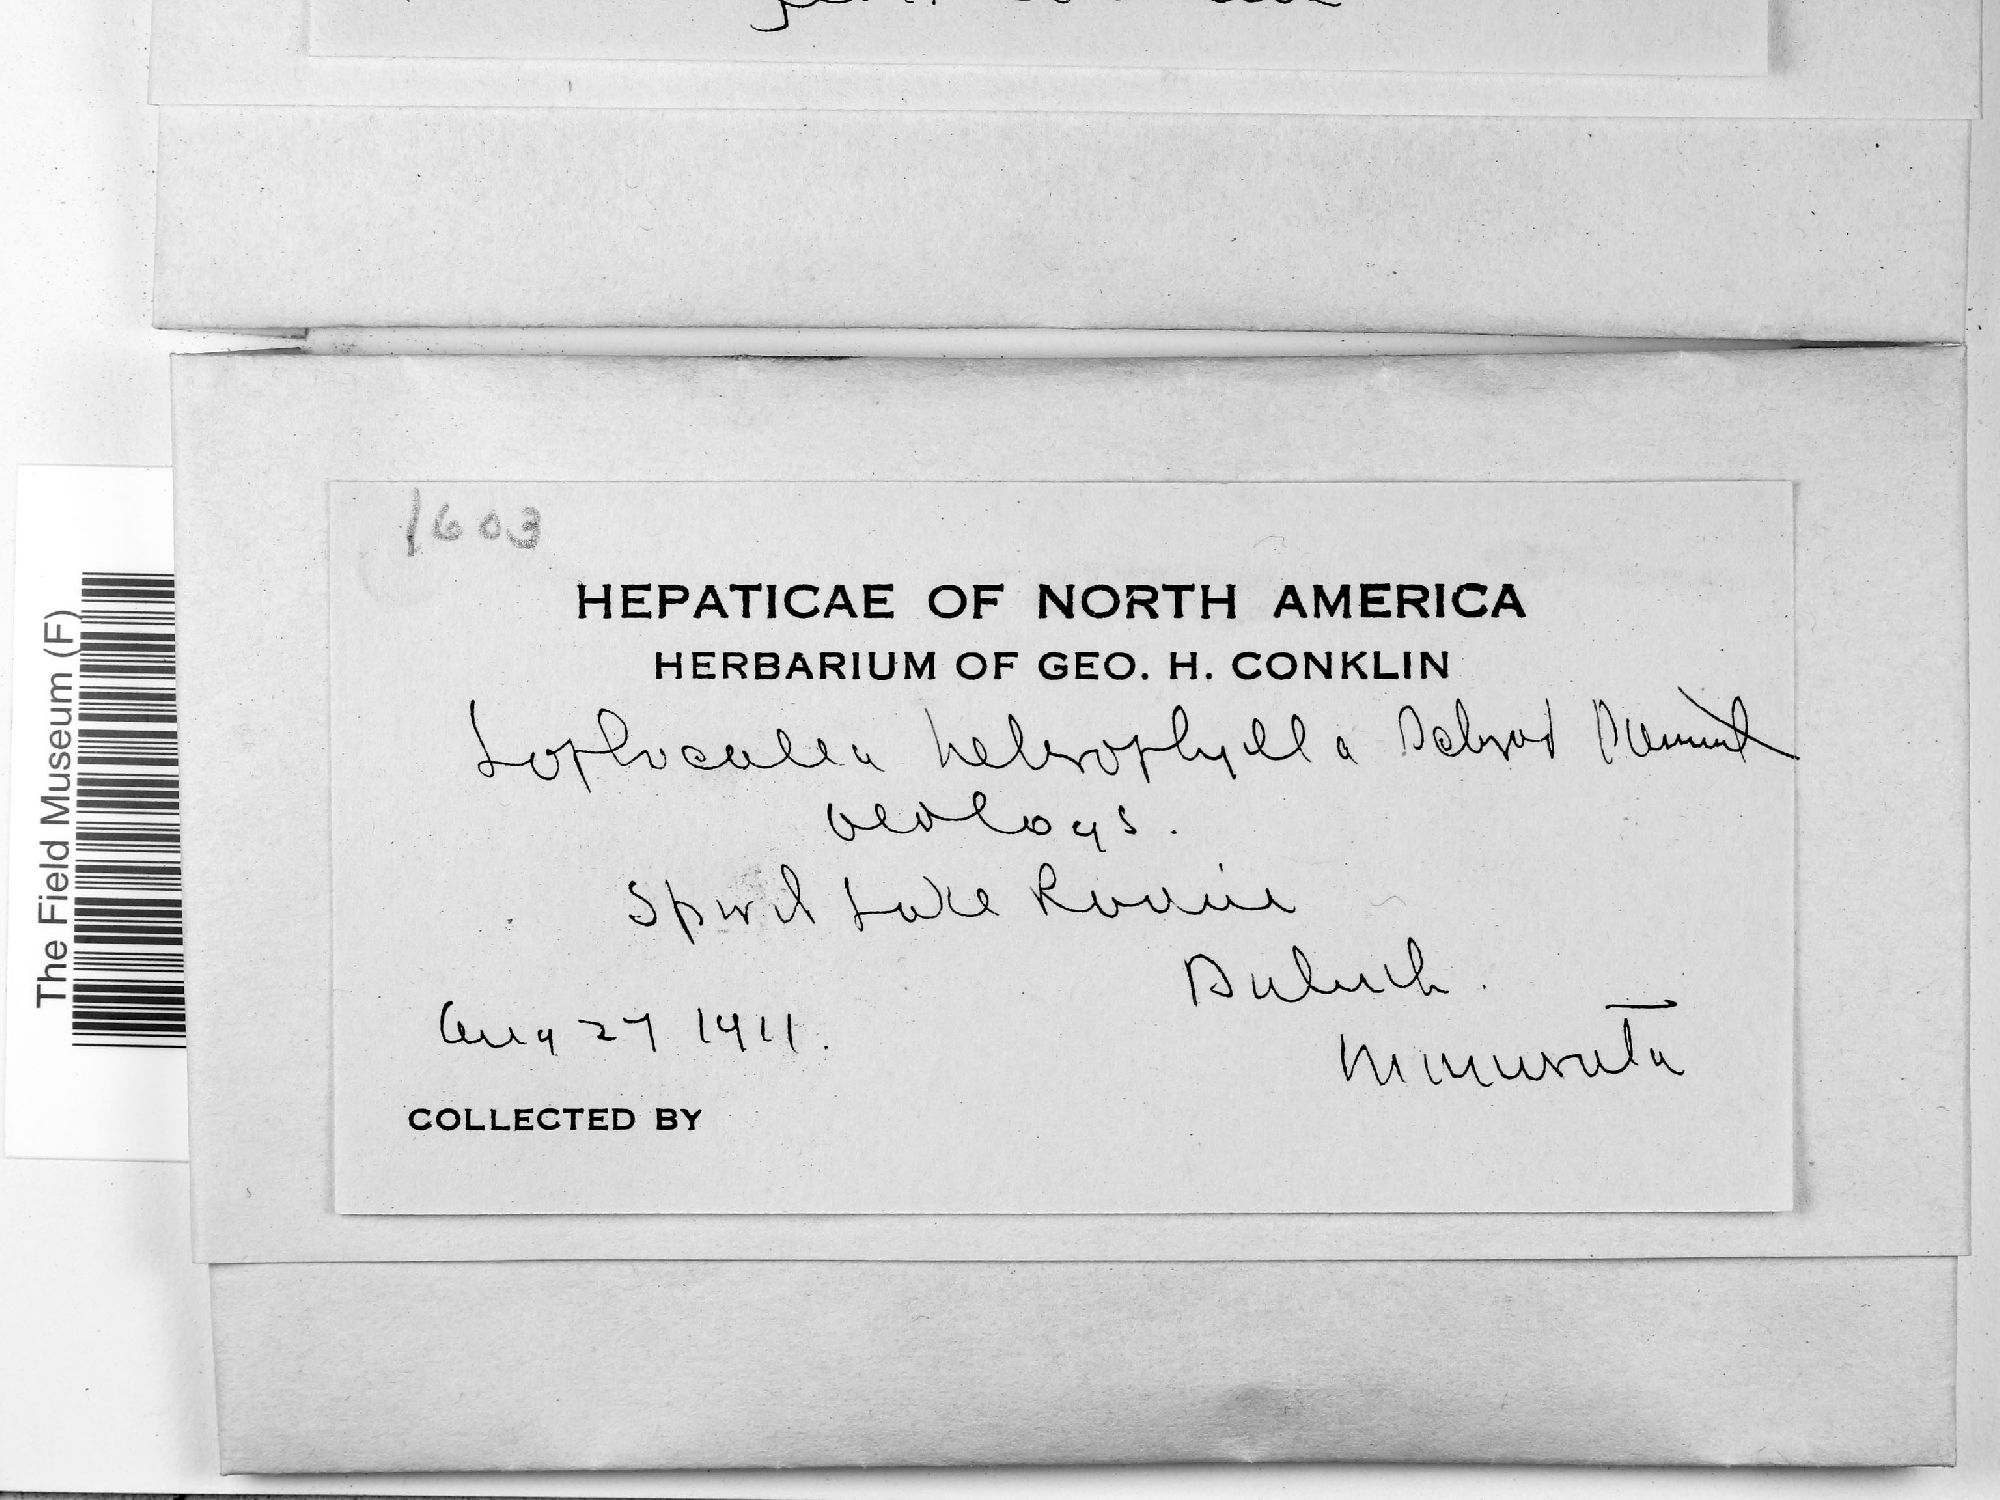 1603
HEPATICAE OF NORTH AMERICA
HERBARIUM OF GEO. H. CONKLIN
Lophocolea heterophylla Schrad Dumort
old logs.
Spirit Lake Ravine
Duluth.
Aug 27 1911.
Minnesota
COLLECTED BY
The Field Museum (F)